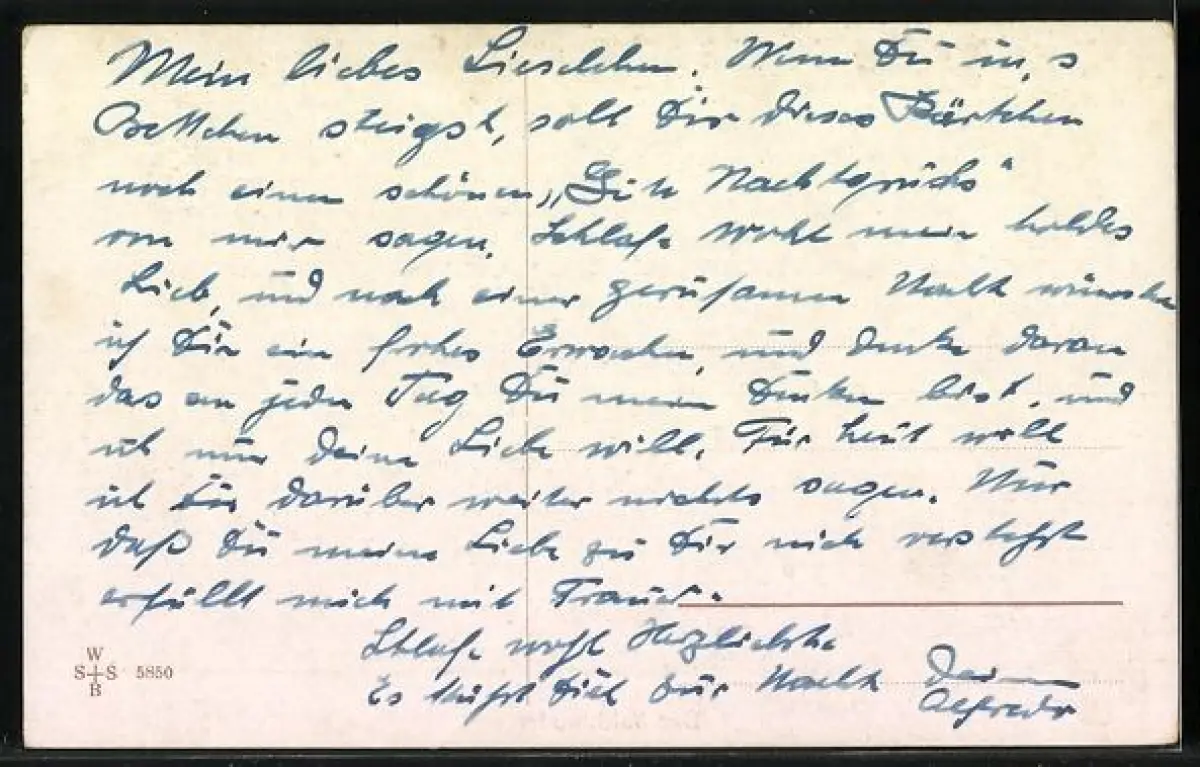 Mein liebes Lieschchen. Wenn Du in,s
Bettchen steigst, soll Dir dieses Kärtchen
noch einen schönen „Gute Nachtgruß“
von mir sagen. Schlafe wohl mein holdes
Lieb, und nach einer geruhsamen Nacht wünsche
ich Dir ein frohes Erwachen, und denke daran
das an jeden Tag Du mein Denken bist, und
ich nur Deine Liebe will. Für heut will
ich Dir darüber weiter nichts sagen. Nur
daß Du meine Liebe zu Dir nich verstehst
erfüllt mich mit Trauer.
Schlafe wohl Herzliebste
Es küßt Dich zur Nacht Dein
Alfred
W
S+S 5850
B